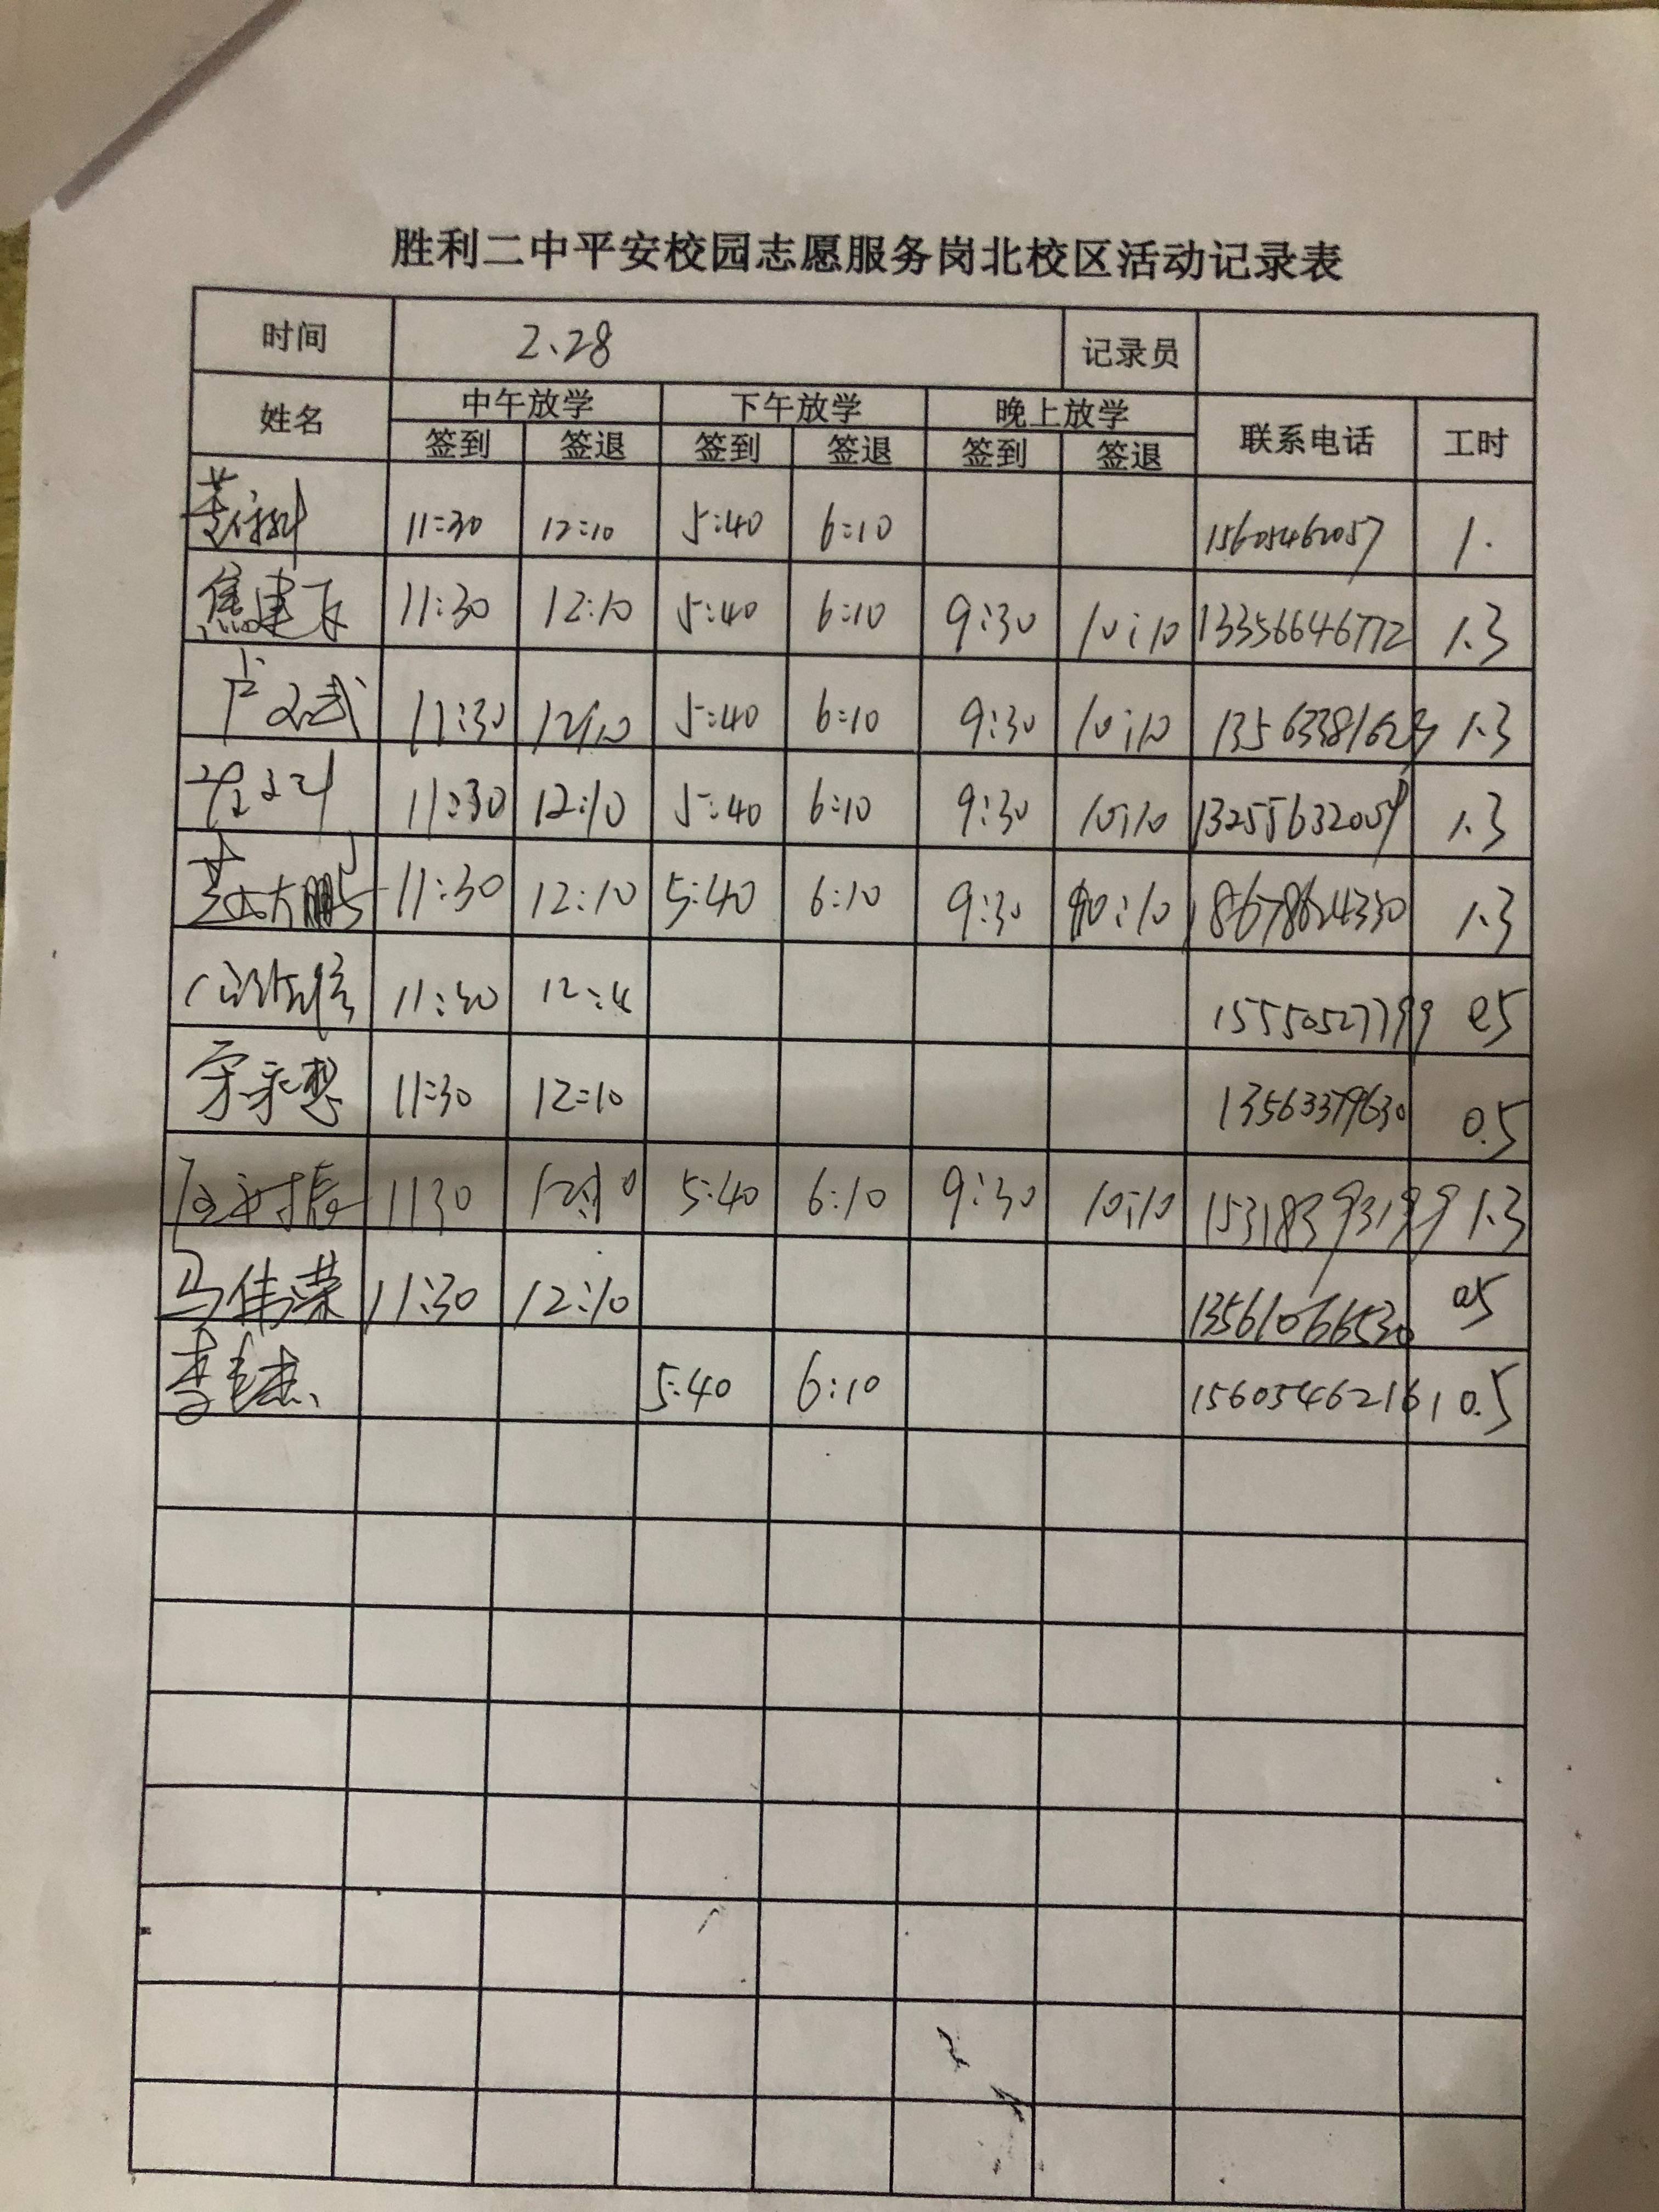 胜利二中平安校园志愿服务岗北校区活动记录表
时间 2.28 记录员
姓名 中午放学 下午放学 晚上放学 联系电话 工时
签到 签退 签到 签退 签到 签退
11:30 12:10 5:40 6:10 15605462057 1.
焦建飞 11:30 12:10 5:40 6:10 9:30 10:10 13356646772 1.3
卢文武 11:30 12:10 5:40 6:10 9:30 10:10 1.3
11:30 12:10 5:40 6:10 9:30 10:10 13255632059 1.3
大鹏 11:30 12:10 5:40 6:10 9:30 10:10 18678624330 1.3
11:30 15550527799 0.5
11:30 12:10 13563379630 0.5
1130 12:10 5:40 6:10 9:30 10:10 15318393199 1.3
马伟荣 11:30 12:10 13561066530 0.5
5:40 6:10 15605462161 0.5